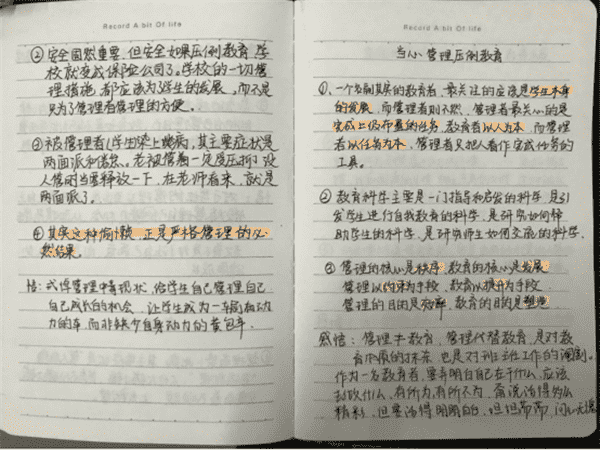 Record A bit Of life
②安全固然重要,但安全如果压倒教育,学
校就变成保险公司了。学校的一切管
理措施,都应该为学生的发展,而不是
只为了管理者管理的方便。
③被管理者(学生染上
两面派和
没
人管时当要释放一下,在老师看来,就是
两面派了。
④其实这种问题,正是严格管理的必
然结果。
悟:
给学生自己管理自己
自己成长的机会,让学生成为一车厢有动
力的车,而非缺少自身动力的黄包车.
Record A bit Of life
当心管理压倒教育
①、一个名副其实的教育者,最关注的应该是学生本身
的发展,而管理者则不然,管理者最关心的是
完成上级布置的任务,教育者以人为本,而管理
者以任务为本,管理者只把人看作完成任务的
工具。
②教育科学主要是一门指导和启发的科学,是引
发学生进行自我教育的科学,是研究如何帮
助学生的科学,是研究师生如何交流的科学.
③管理的核心是秩序,教育的核心是发展
管理以约束为手段,教育以提升为手段.
管理的目的是
教育的目的是塑造
感悟:管理≠教育,管理代替教育,是对教
育本质的抹杀,也是对班主任工作的讽刺。
作为一名教育者,要弄明白自己在干什么,应该
去做什么,有所为,有所不为,
说活得多么
精彩,但要活得明明白白,坦坦荡荡,问心无愧